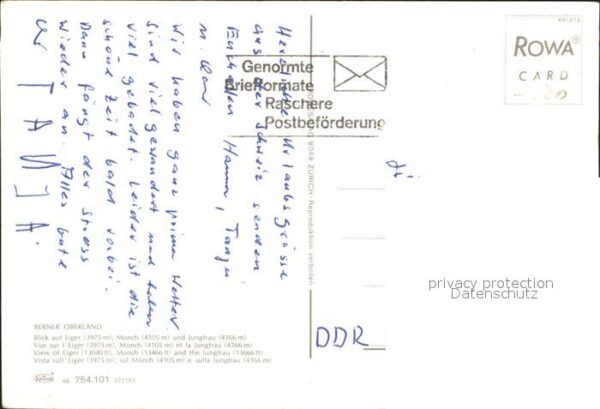 Herzliche Urlaubsgrüsse
aus der Schweiz senden
Euch allen Hanna, Tanja
u.
Wir haben ganz prima Wetter
sind viel gewandert und haben
viel gebadet. Leider ist die
schöne Zeit bald vorbei.
Dann fängt der Stress
wieder an. Alles Gute
TANJA.
491 573
ROWA®
CARD
Genormte
Briefformate
Raschere
Postbeförderung
8049 ZÜRICH - Reproduktion verboten
DDR
privacy protection
Datenschutz
BERNER OBERLAND
Blick auf Eiger (3975 m), Mönch (4105 m) und Jungfrau (4166 m)
Vue sur l'Eiger (3975 m), Mönch (4105 m) et la Jungfrau (4166 m)
View of Eiger (13040 ft), Mönch (13466 ft) and the Jungfrau (13666 ft)
Vista sull'Eiger (3975 m), sul Mönch (4105 m) e sulla Jungfrau (4166 m)
754.101